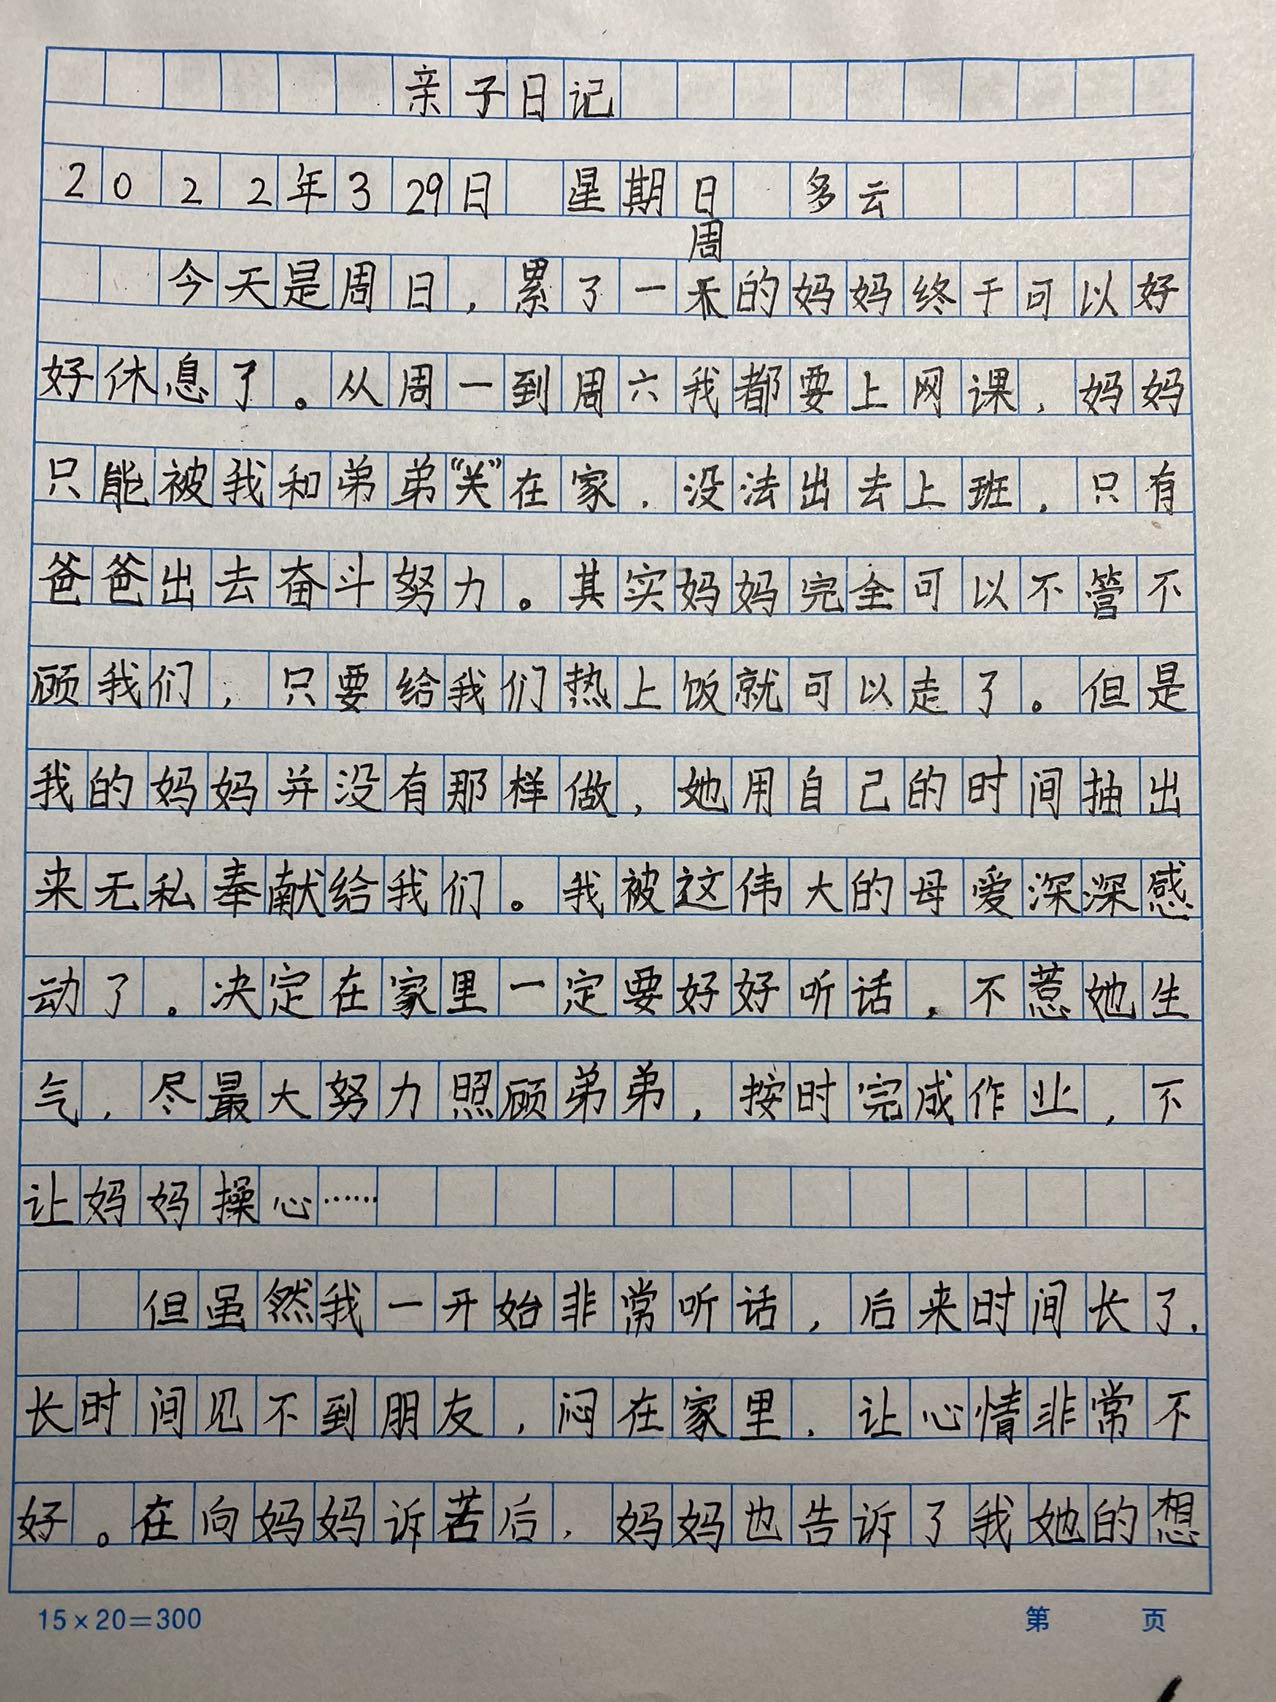 亲子日记
2022年3 29日 星期日 多云
周
今天是周日，累了一天的妈妈终于可以好
好休息了。从周一到周六我都要上网课，妈妈
只能被我和弟弟“关”在家，没法出去上班，只有
爸爸出去奋斗努力。其实妈妈完全可以不管不
顾我们，只要给我们热上饭就可以走了。但是
我的妈妈并没有那样做，她用自己的时间抽出
来无私奉献给我们。我被这伟大的母爱深深感
动了。决定在家里一定要好好听话，不惹她生
气，尽最大努力照顾弟弟，按时完成作业，不
让妈妈操心……
但虽然我一开始非常听话，后来时间长了，
长时间见不到朋友，闷在家里，让心情非常不
好。在向妈妈诉苦后，妈妈也告诉了我她的想
15×20=300 第 页